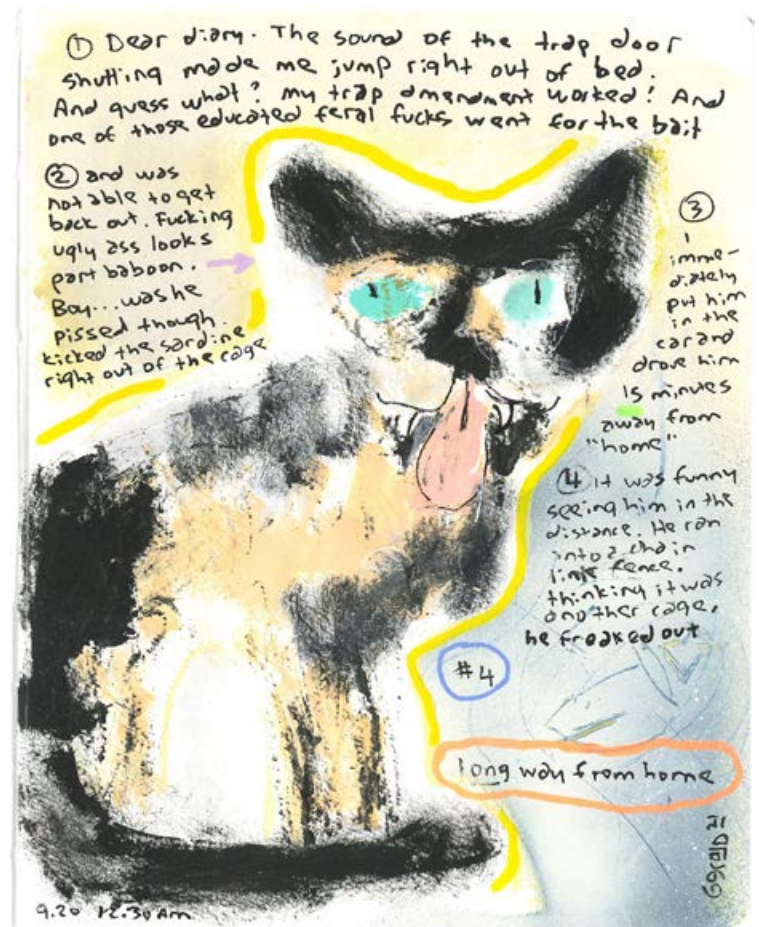 ① Dear diary. The sound of the trap door
shutting made me jump right out of bed.
And guess what? my trap amendment worked! And
one of those educated feral fucks went for the bait
② and was
not able to get
back out. Fucking
ugly ass looks
part baboon.
Boy...was he
pissed though.
kicked the sardine
right out of the cage
③
I
imme-
diately
put him
in the
car and
drove him
15 minutes
away from
"home"
④ it was funny
seeing him in the
distance. He ran
into a chain
link fence.
thinking it was
another cage,
he freaked out
#4
long way from home
9.20 12.30 Am